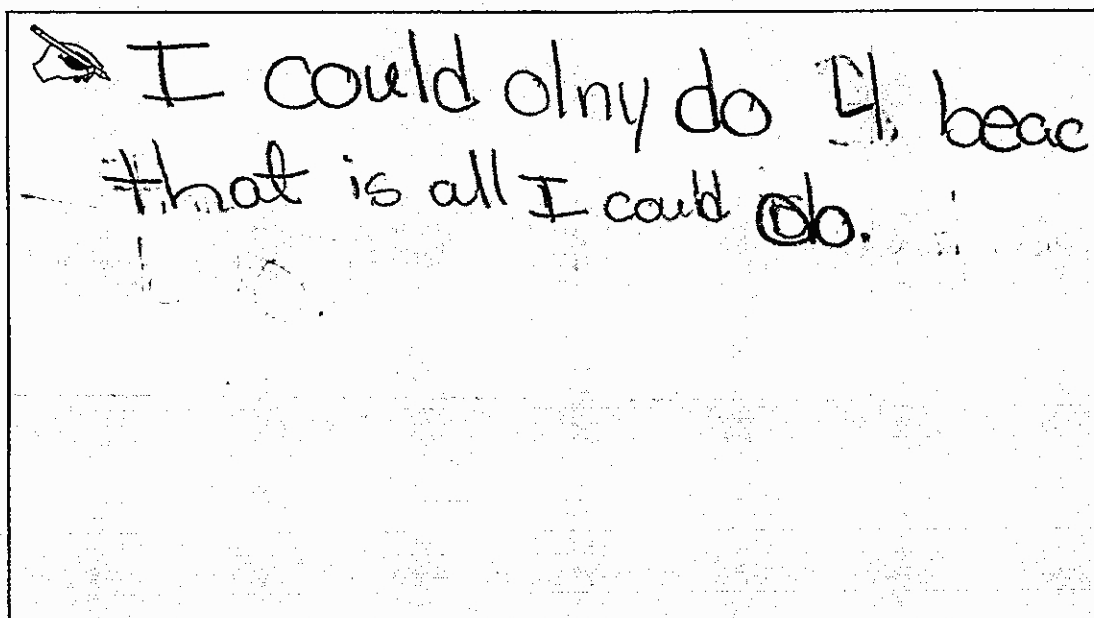 I could olny do 4 beac
that is all I could do.